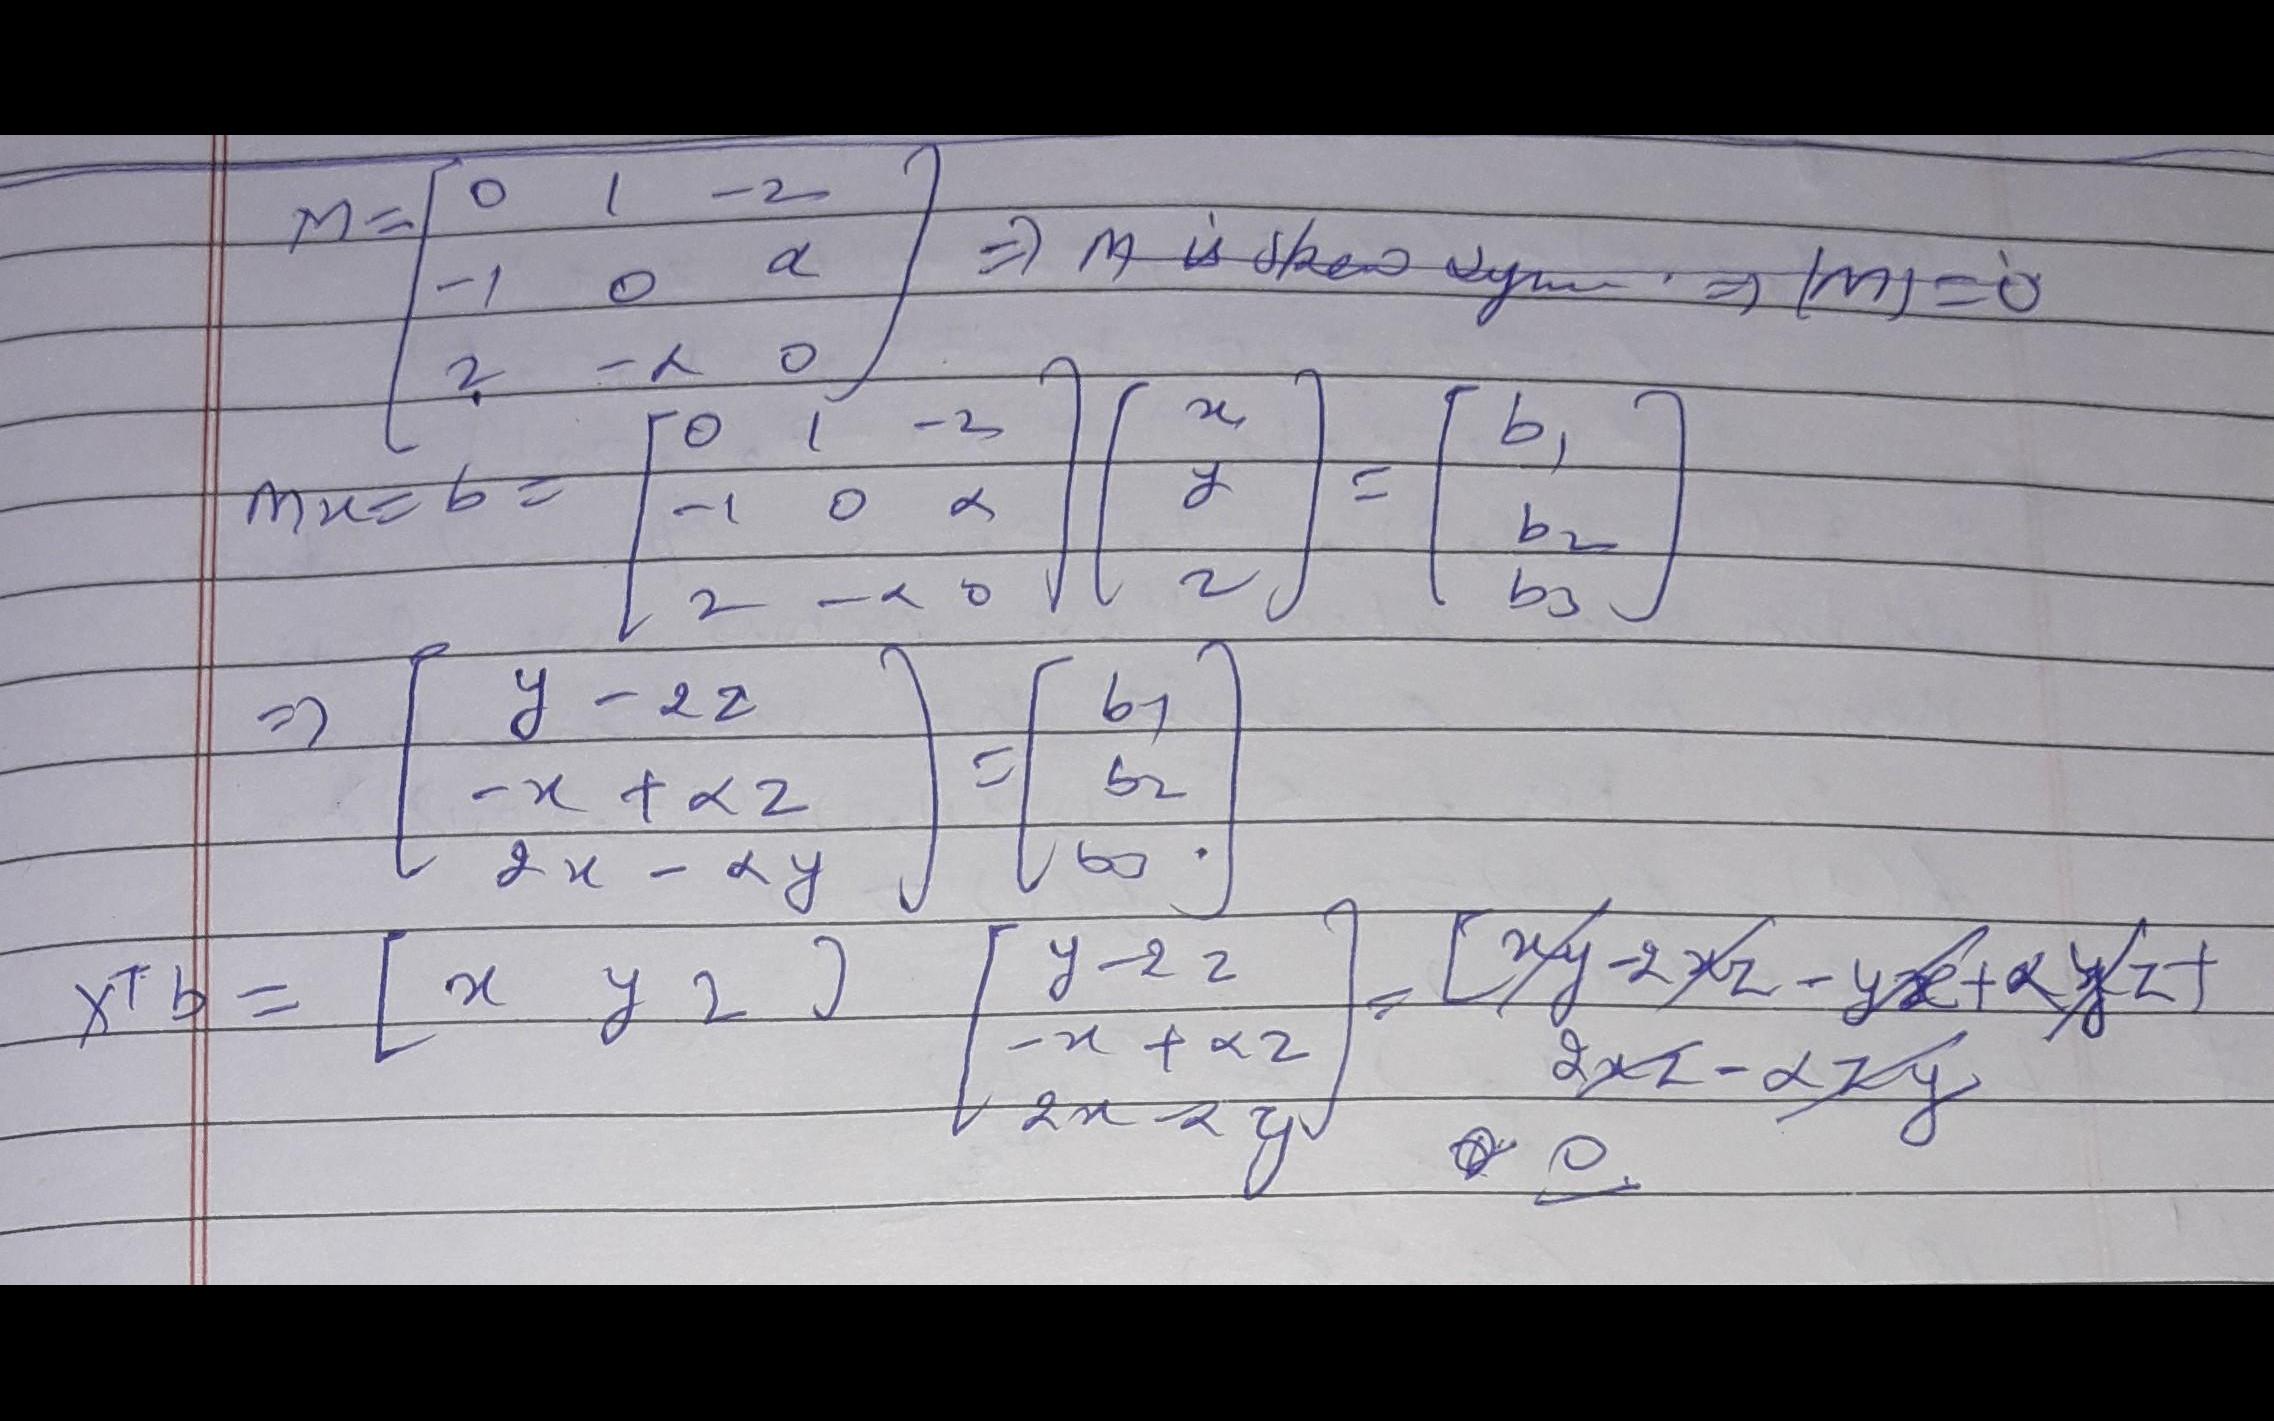 M = [ 0 1 -2
-1 0 α
2 -α 0 ] ⇒ M is skew sym. ⇒ |M| = 0
Mx = b = [ 0 1 -2
-1 0 α
2 -α 0 ] [ x
y
z ] = [ b1
b2
b3 ]
⇒ [ y - 2z
-x + αz
2x - αy ] = [ b1
b2
b3 ]
X^T b = [ x y z ] [ y - 2z
-x + αz
2x - αy ] = [ xy - 2xz - yx + αyz +
2xz - αzy
0.